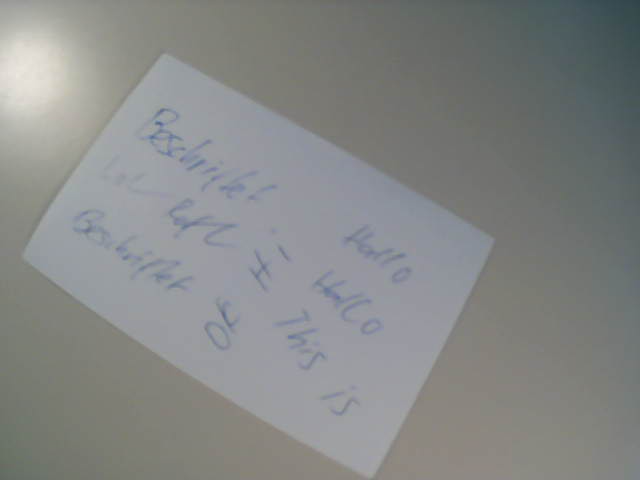 Beschriftet Hallo
LoL Rofl Hallo
Beschriftet This is